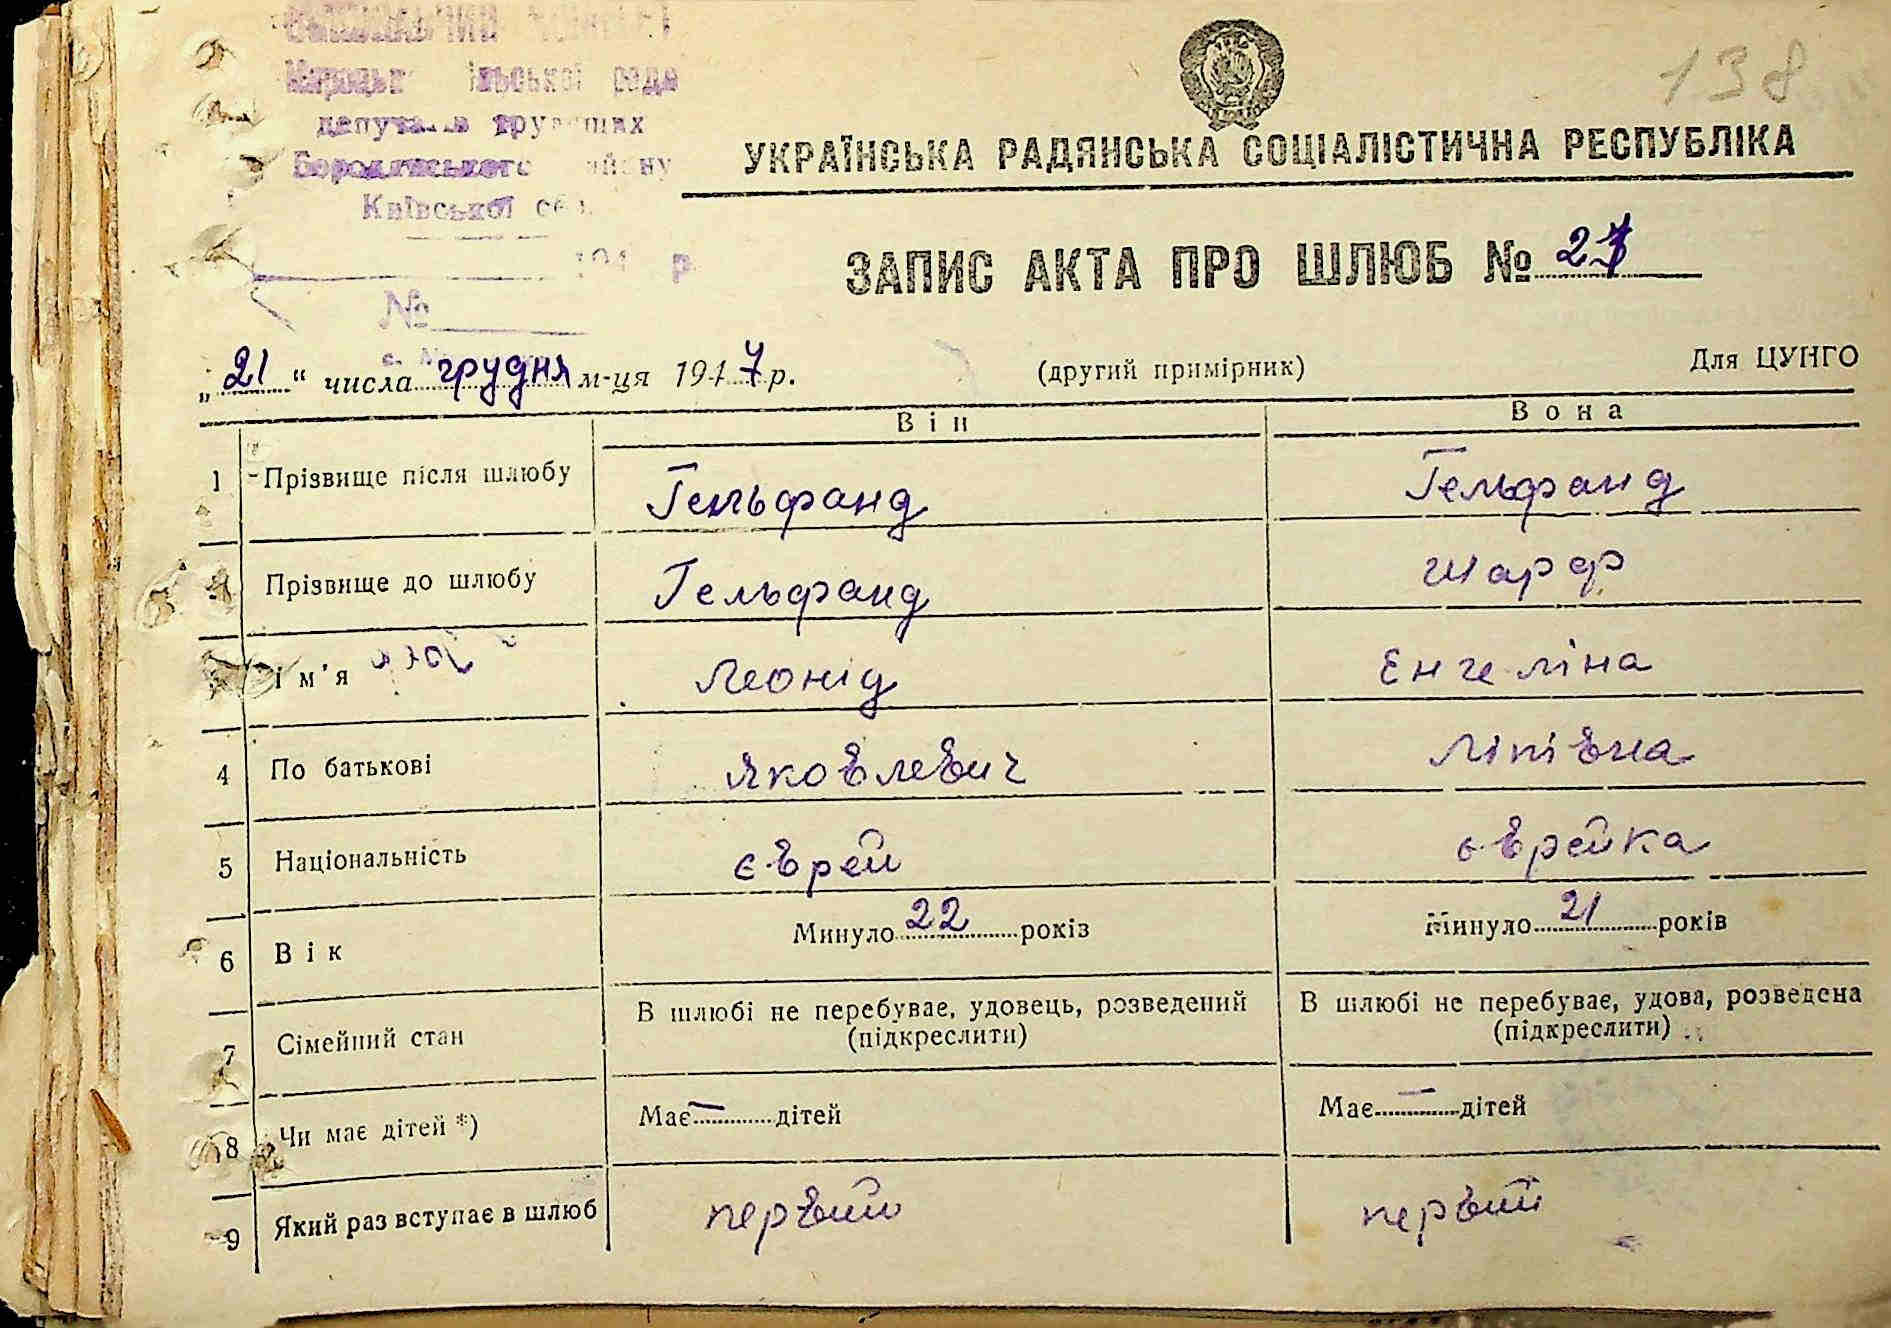 138
депутатів трудящих
Бородянського району
Київської обл.
194 р.
№
УКРАЇНСЬКА РАДЯНСЬКА СОЦІАЛІСТИЧНА РЕСПУБЛІКА
ЗАПИС АКТА ПРО ШЛЮБ № 27
„21“ числа грудня м-ця 1947 р. (другий примірник) Для ЦУНГО
Він Вона
1 Прізвище після шлюбу Гельфанд Гельфанд
Прізвище до шлюбу Гельфанд Шарф
Ім'я Леонід Енгеліна
4 По батькові Яковлевич Ліпівна
5 Національність єврей єврейка
6 Вік Минуло 22 років Минуло 21 років
7 Сімейний стан В шлюбі не перебуває, удовець, розведений (підкреслити) В шлюбі не перебуває, удова, розведена (підкреслити)
8 Чи має дітей *) Має — дітей Має — дітей
9 Який раз вступає в шлюб первий первий